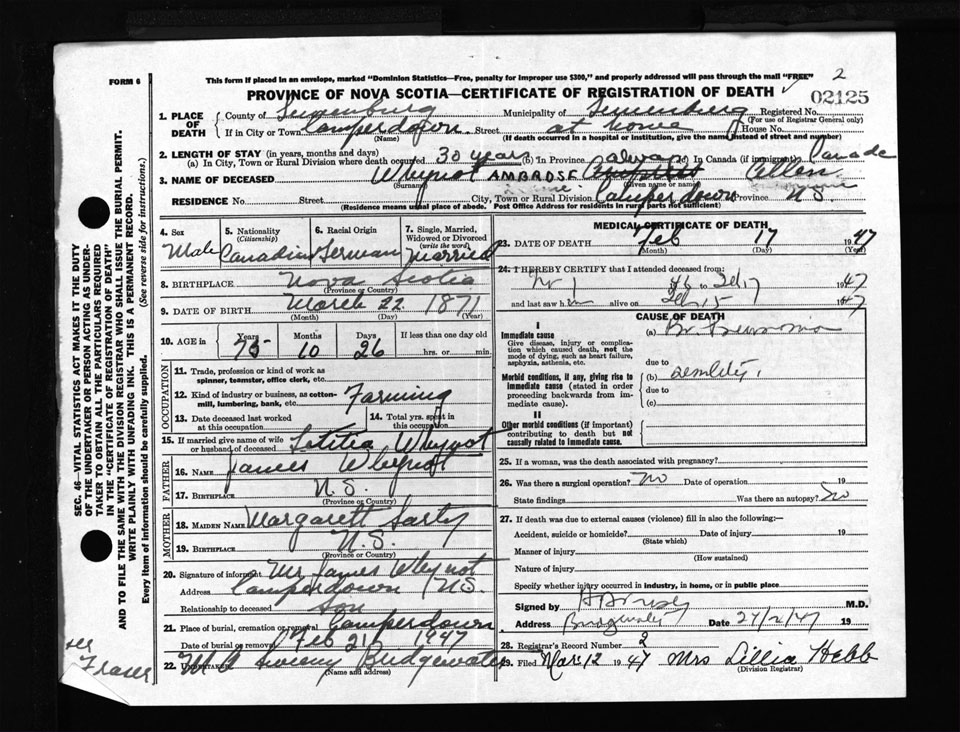 FORM 6
This form if placed in an envelope, marked "Dominion Statistics—Free, penalty for improper use $300," and properly addressed will pass through the mail "FREE"
2
PROVINCE OF NOVA SCOTIA—CERTIFICATE OF REGISTRATION OF DEATH
02125
1. PLACE OF DEATH
County of Lunenburg Municipality of Lunenburg Registered No.
(For use of Registrar General only)
If in City or Town Camperdown Street at home House No.
(Name) (If death occurred in a hospital or institution, give the name instead of street and number)
2. LENGTH OF STAY (in years, months and days)
(a) In City, Town or Rural Division where death occurred 30 years (b) In Province always (c) In Canada (if immigrant) Canada
3. NAME OF DECEASED Wheynot AMBROSE Allen
(Surname) (Given name or names)
RESIDENCE No. Street City, Town or Rural Division Camperdown Province N.S.
(Residence means usual place of abode. Post Office Address for residents in rural parts not sufficient)
4. Sex
Male
5. Nationality
(Citizenship)
Canadian
6. Racial Origin
German
7. Single, Married, Widowed or Divorced
(write the word)
Married
8. BIRTHPLACE Nova Scotia
(Province or Country)
9. DATE OF BIRTH March 22 1871
(Month) (Day) (Year)
10. AGE in
Years Months Days If less than one day old
75 10 26 hrs. or min.
OCCUPATION
11. Trade, profession or kind of work as spinner, teamster, office clerk, etc.
12. Kind of industry or business, as cotton-mill, lumbering, bank, etc. Farming
13. Date deceased last worked at this occupation
14. Total yrs. spent in this occupation
15. If married give name of wife or husband of deceased Letitia Wheynot
FATHER
16. NAME James Wheynot
17. BIRTHPLACE N.S.
(Province or Country)
MOTHER
18. MAIDEN NAME Margarett Sarty
19. BIRTHPLACE N.S.
(Province or Country)
20. Signature of informant Mr James Wheynot
Address Camperdown N.S.
Relationship to deceased son
21. Place of burial, cremation or removal Camperdown
Date of burial or removal Feb 21 1947
22. UNDERTAKER Sweeny Bridgewater
(Name and address)
MEDICAL CERTIFICATE OF DEATH
23. DATE OF DEATH Feb 17 1947
(Month) (Day) (Year)
24. I HEREBY CERTIFY that I attended deceased from:
to Feb 17 1947
and last saw him alive on Feb 15 1947
CAUSE OF DEATH
I
Immediate cause
Give disease, injury or complication which caused death, not the mode of dying, such as heart failure, asphyxia, asthenia, etc.
(a) Br Pneumonia
due to
Morbid conditions, if any, giving rise to immediate cause (stated in order proceeding backwards from immediate cause).
(b) senility.
due to
(c)
II
Other morbid conditions (if important) contributing to death but not causally related to immediate cause.
25. If a woman, was the death associated with pregnancy?
26. Was there a surgical operation? no Date of operation 19
State findings Was there an autopsy? no
27. If death was due to external causes (violence) fill in also the following:—
Accident, suicide or homicide? Date of injury 19
(State which)
Manner of injury
(How sustained)
Nature of injury
Specify whether injury occurred in industry, in home, or in public place
Signed by M.D.
Address Bridgewater Date 27/2/47 19
28. Registrar's Record Number 2
29. Filed Mar. 12 1947 Mrs Lillia Hebb
(Division Registrar)
SEC. 46—VITAL STATISTICS ACT MAKES IT THE DUTY OF THE UNDERTAKER OR PERSON ACTING AS UNDERTAKER TO OBTAIN ALL THE PARTICULARS REQUIRED IN THE "CERTIFICATE OF REGISTRATION OF DEATH" AND TO FILE THE SAME WITH THE DIVISION REGISTRAR WHO SHALL ISSUE THE BURIAL PERMIT.
WRITE PLAINLY WITH UNFADING INK. THIS IS A PERMANENT RECORD.
Every item of information should be carefully supplied. (See reverse side for instructions.)
Fraser